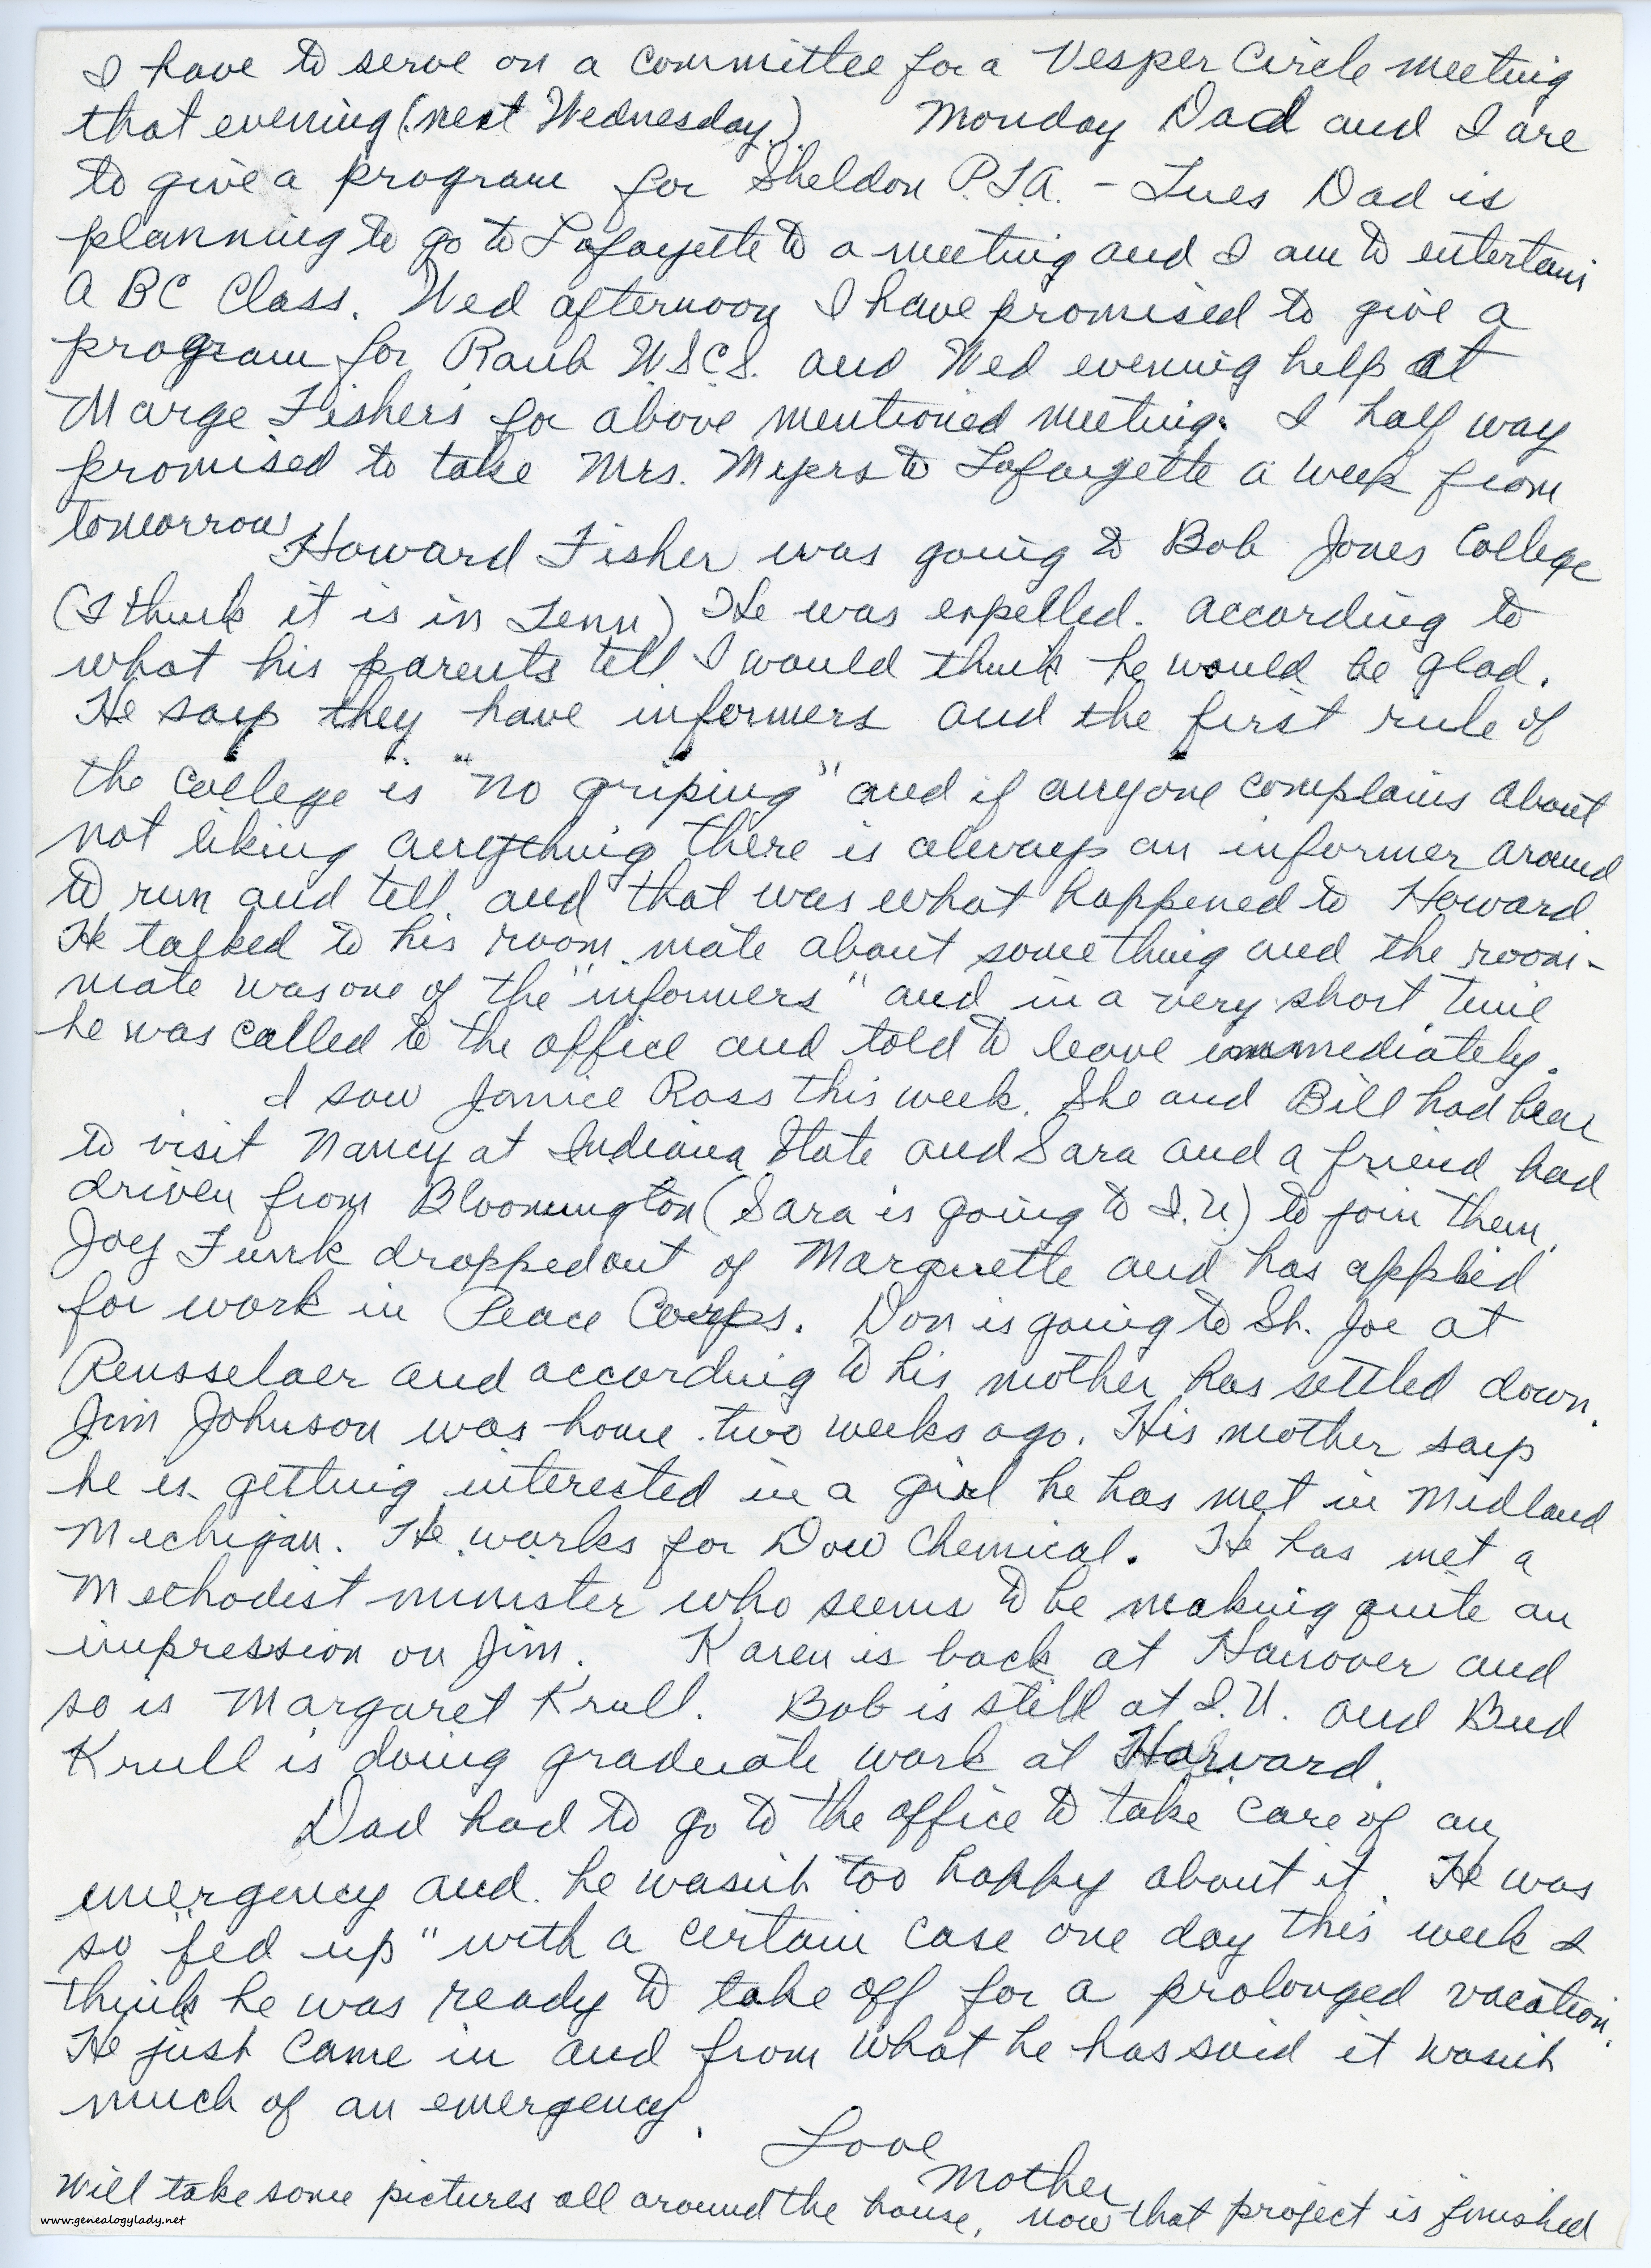 I have to serve on a committee for a Vesper Circle meeting
that evening (next Wednesday.) Monday Dad and I are
to give a program for Sheldon P.T.A. - Tues Dad is
planning to go to Lafayette to a meeting and I am to entertain
A B C Class. Wed afternoon I have promised to give a
program for Raub W.S.C.S. and Wed evening help at
Marge Fishers for above mentioned meeting. I half way
promised to take Mrs. Myers to Lafayette a week from
tomorrow
Howard Fisher was going to Bob Jones College
(I think it is in Tenn) He was expelled. According to
what his parents tell I would think he would be glad.
He says they have informers and the first rule of
the college is "no griping" and if anyone complains about
not liking anything there is always an informer around
to run and tell and that was what happened to Howard.
He talked to his room mate about something and the room-
mate was one of the "informers" and in a very short time
he was called to the office and told to leave immediately.
I saw Janice Ross this week. She and Bill had been
to visit Nancy at Indiana State and Sara and a friend had
driven from Bloomington (Sara is going to I.U.) to join them.
Joey Funk dropped out of Marquette and has applied
for work in Peace Corps. Don is going to St. Joe at
Rensselaer and according to his mother has settled down.
Jim Johnson was home two weeks ago. His mother says
he is getting interested in a girl he has met in Midland
Michigan. He works for Dow Chemical. He has met a
Methodist minister who seems to be making quite an
impression on Jim. Karen is back at Hanover and
so is Margaret Krull. Bob is still at I.U. and Bud
Krull is doing graduate work at Harvard.
Dad had to go to the office to take care of an
emergency and he wasn't too happy about it. He was
so "fed up" with a certain case one day this week I
think he was ready to take off for a prolonged vacation.
He just came in and from what he has said it wasn't
much of an emergency.
Love
Mother
Will take some pictures all around the house, now that project is finished
www.genealogylady.net